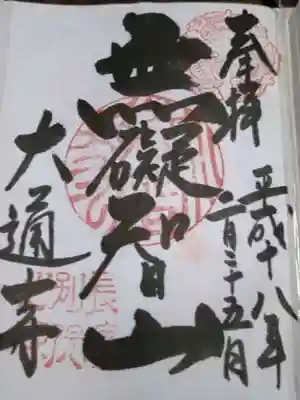 奉拝
平成十八年
二月二十五日
無礙智山
大通寺